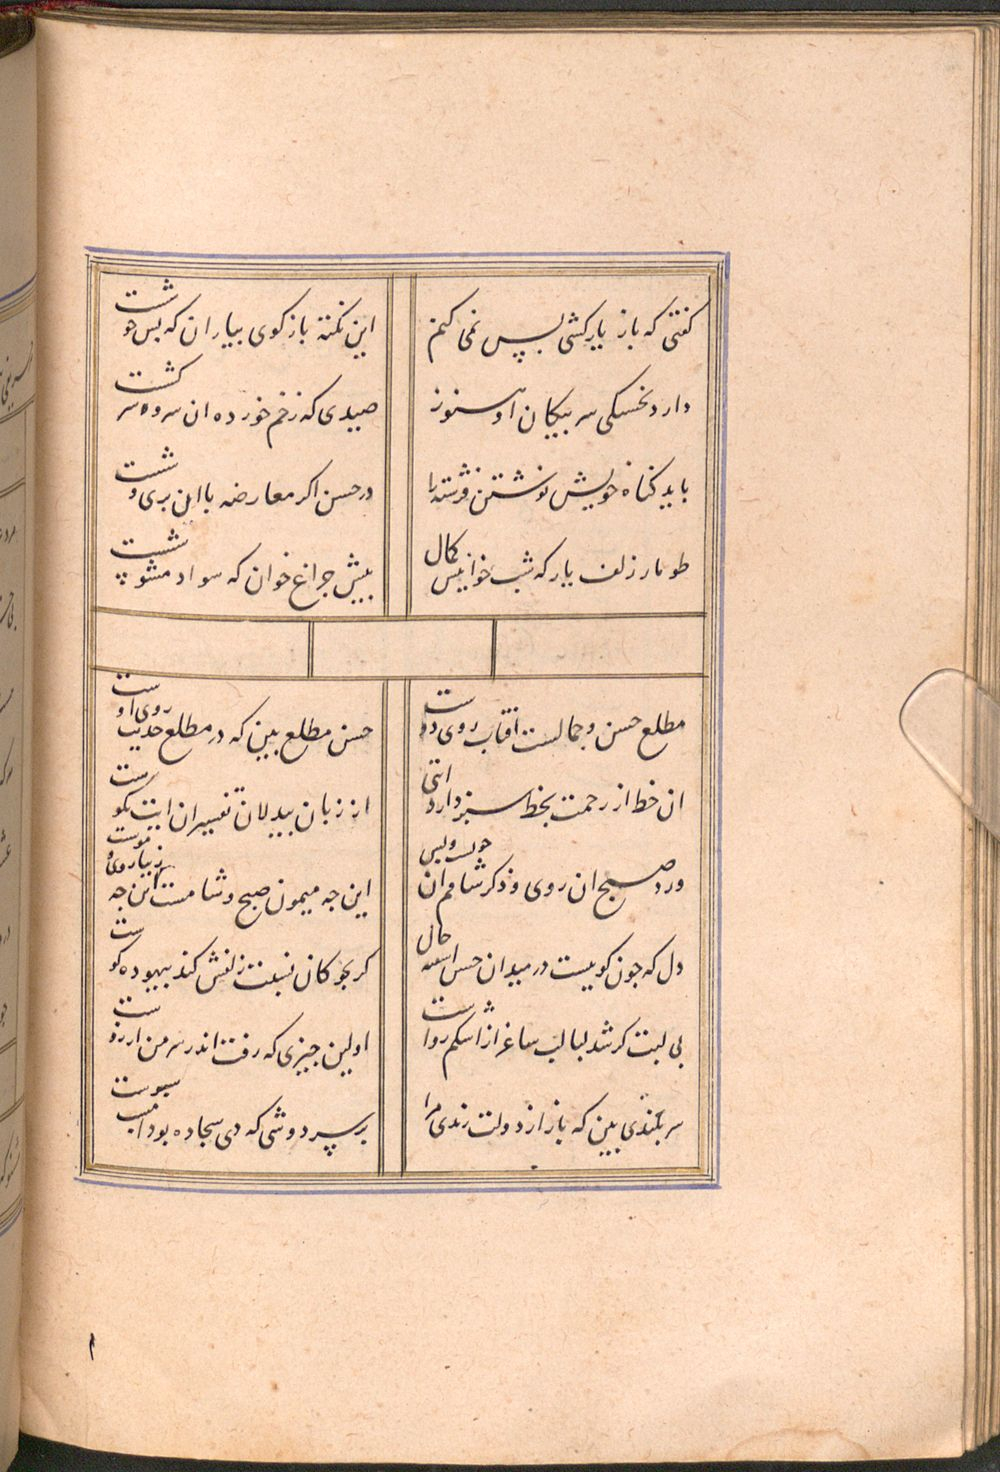 کفتی که باز یار کشی پس نمی کنم
این نکته باز کوی بیاران که بس خوشست
دارد بخستکی سر پیکان او هنوز
صیدی که زخم خورده ان سر و سرکشت
باید کناه خویش نوشتن فرشته را
در حسن اکر معارضه با این پری وشست
طومار زلف یار که شب خوانیش کمال
پیش چراغ خوان که سواد مشوشست
مطلع حسن و جمالست افتاب روی دوست
حسن مطلع بین که در مطلع حدیث روی اوست
ان خط از رحمت بخط سبز دارد ایتی
از زبان بیدلان تفسیر ان ایت نکوست
ورد صبح ان روی و ذکر شامم ان
این چه میمون صبح و شامست این چه زیبا روی و موست
دل که چون کوییست در میدان حسن حال
کر بچوکان نسبت زلفش کند بیهوده کوست
بی لبت کر شد لبالب ساغر از اشکم رواست
اولین چیزی که رفت اندر سر من ارزوست
سر بلندی بین که باز از دولت رندی مرا
بر سر دوشی که دی سجاده بود امشب سبوست